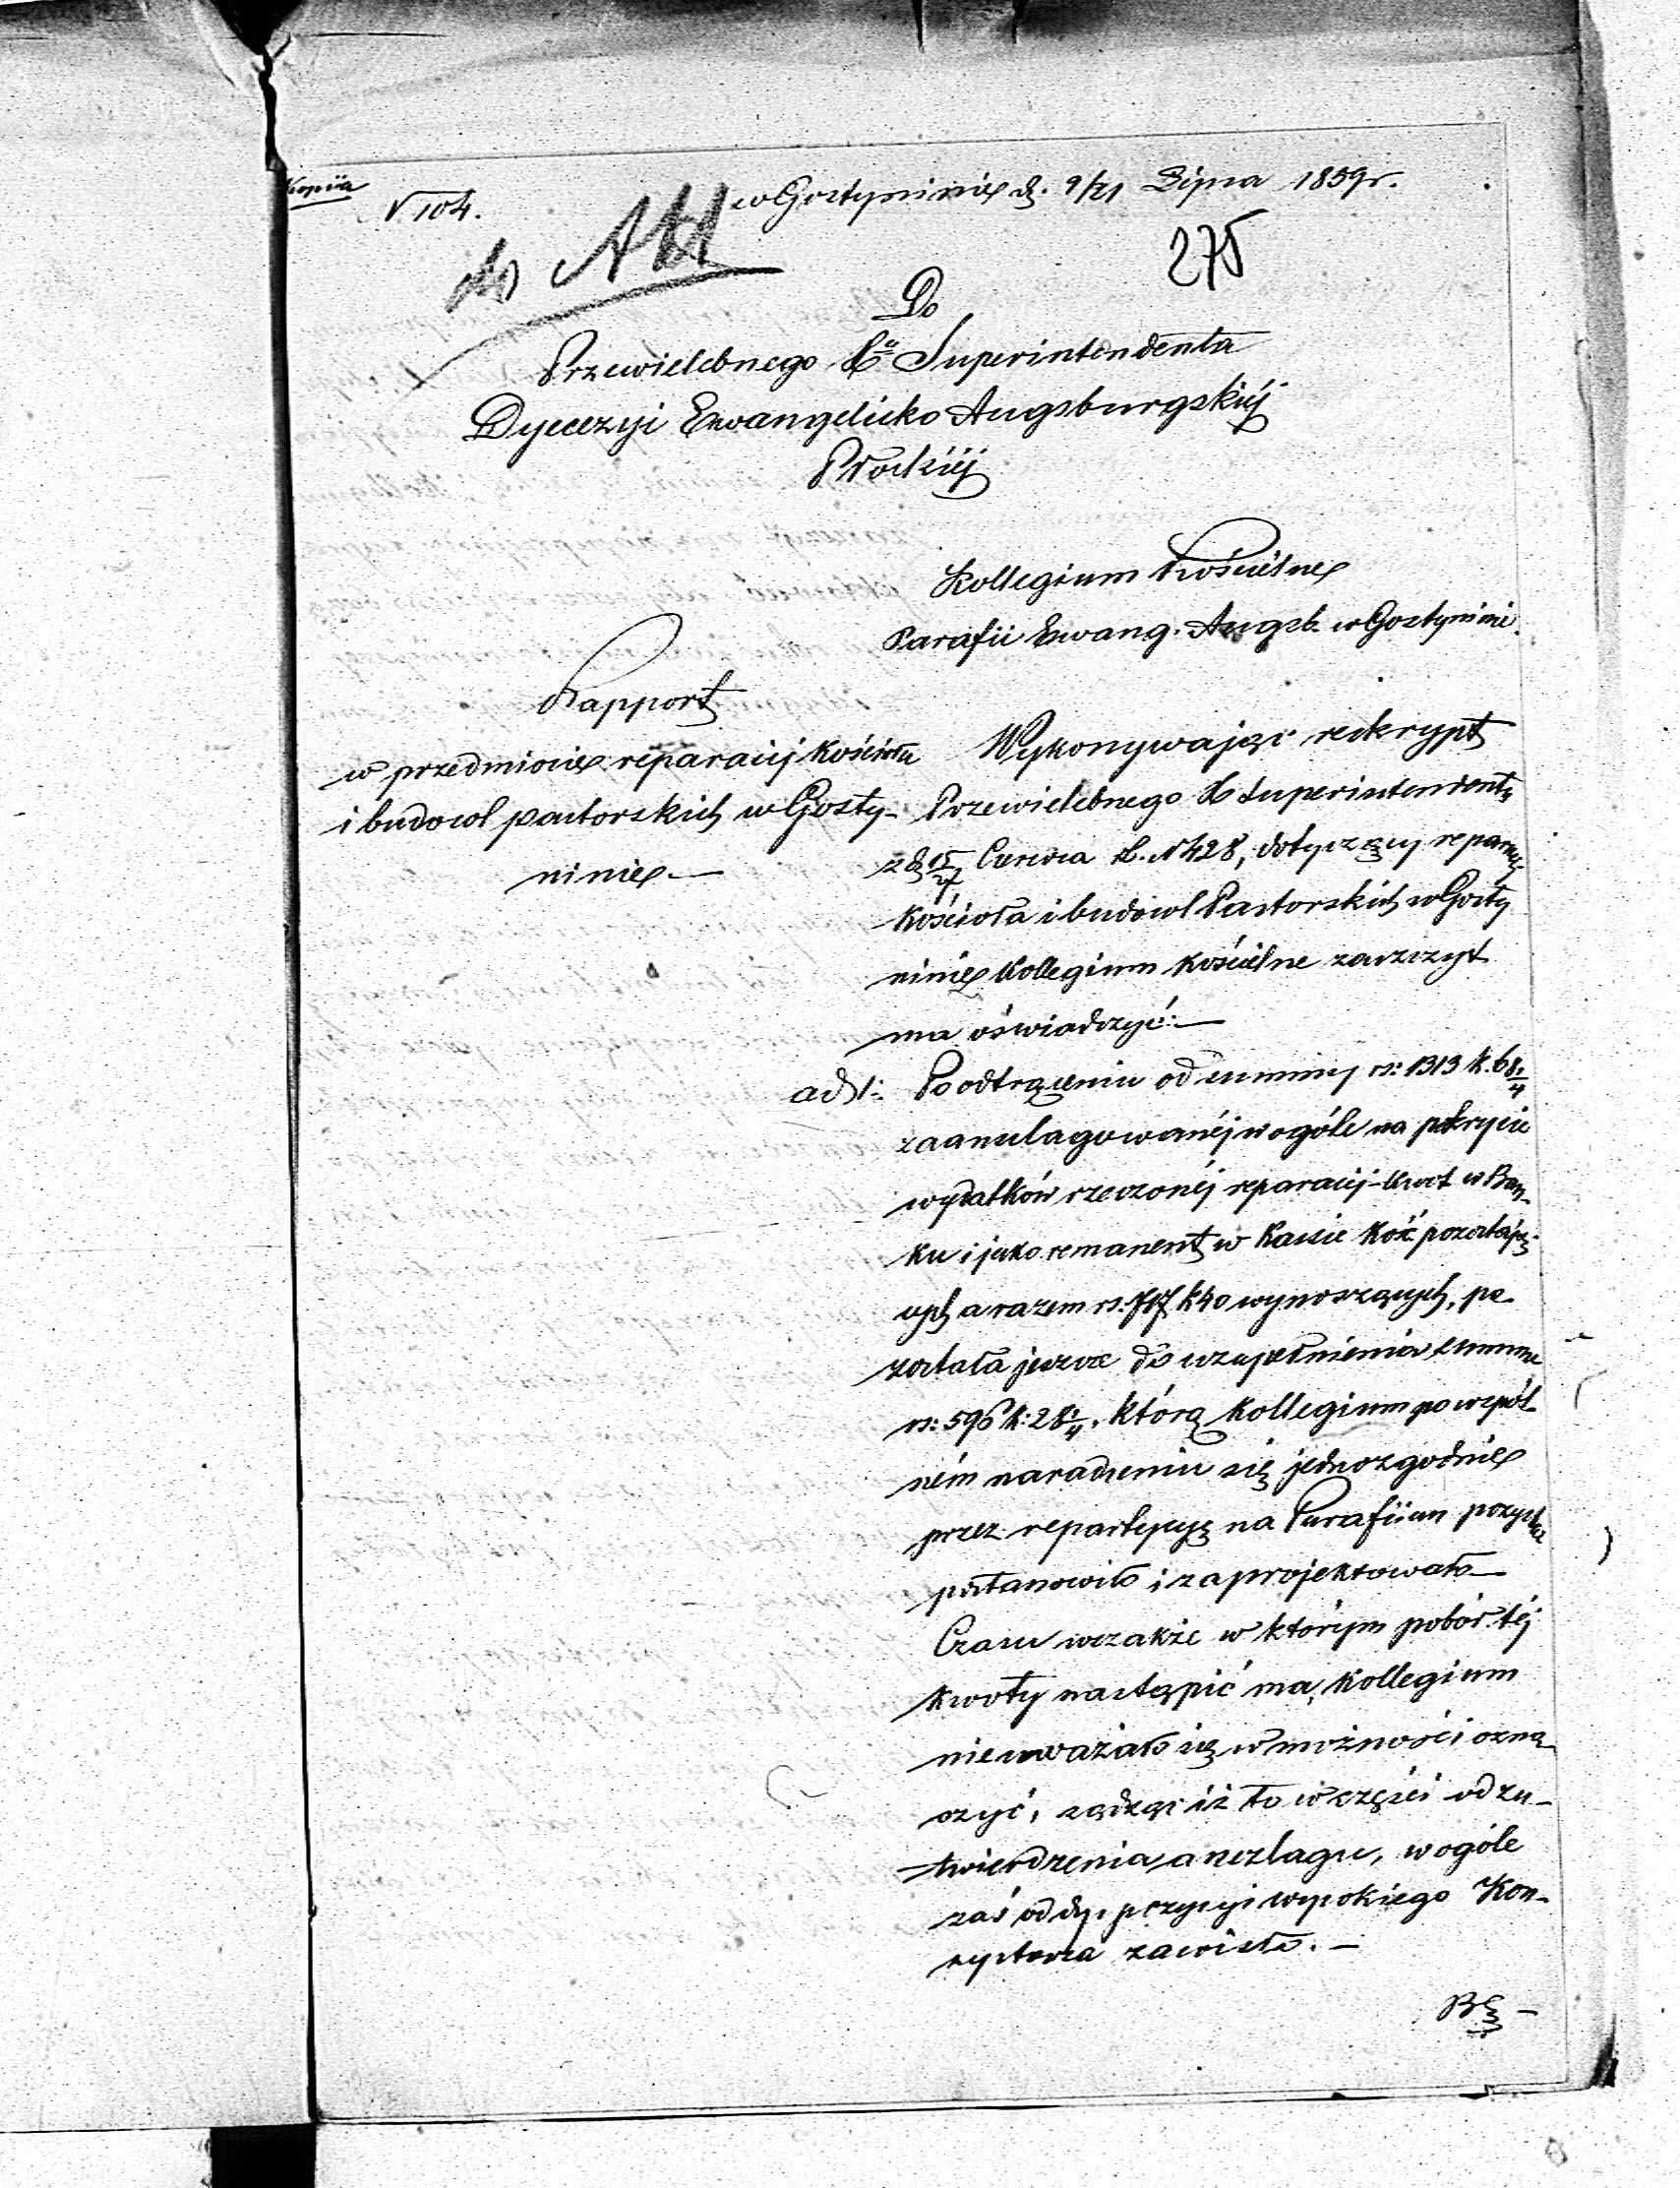 Kopiia
N 104.
w Gostyninie d. 9/21 Lipca 1859r.
do Akt
275
Do
Przewielebnego Xa Superintendenta
Dyecezyi Ewangelicko Augsburgskiéj
Płockiéj
Kollegium Kościelne
Parafii Ewang. Augsb. w Gostyninie.
Rapport
w przedmiocie reparacij Kościoła
i budowl pastorskich w Gosty-
ninie.—
Wykonywając reskrypt
Przewielebnego X Superintendenta
z d. 15/27 Czerwca rb. N 428, dotyczący reparacij
Kościoła i budowl Pastorskich w Gosty
ninie Kollegium Kościelne zaszczyt
ma oświadczyć:—
ad 1: Po odtrąceniu od summy rs: 1313 k. 68 1/4
zaanszlagowanéj w ogóle na pokrycie
wydatków rzeczonéj reparacij - kwot w Ban-
ku i jako remanent w Kassie Koś. pozostają-
cych a razem rs. 717 k 40 wynoszących, po-
zostala jeszcze do uzupełnienia summa
rs: 596 k: 28 1/4, którą Kollegium po wspól-
ném naradzeniu się jednozgodnie
przez repartycyą na Parafiian pozyskać
postanowiło i zaprojektowało—
Czasu wszakże w którym pobór téj
kwoty nastąpić ma, Kollegium
nie uważało się w możności ozna-
czyć, sądząc iż to w części od za-
twierdzenia anszlagu, w ogóle
zaś od dyspozycyi wysokiego Kon-
systorza zawisło.—
Bę-